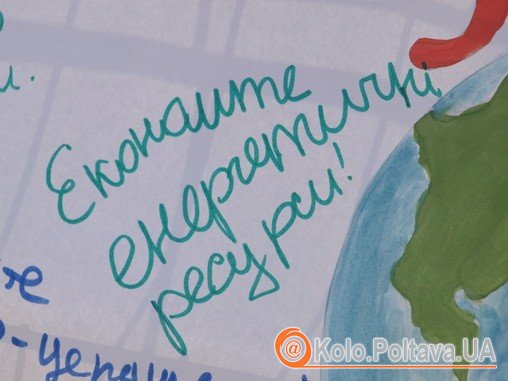 Економте
енергетичні
ресурси!
Kolo.Poltava.UA